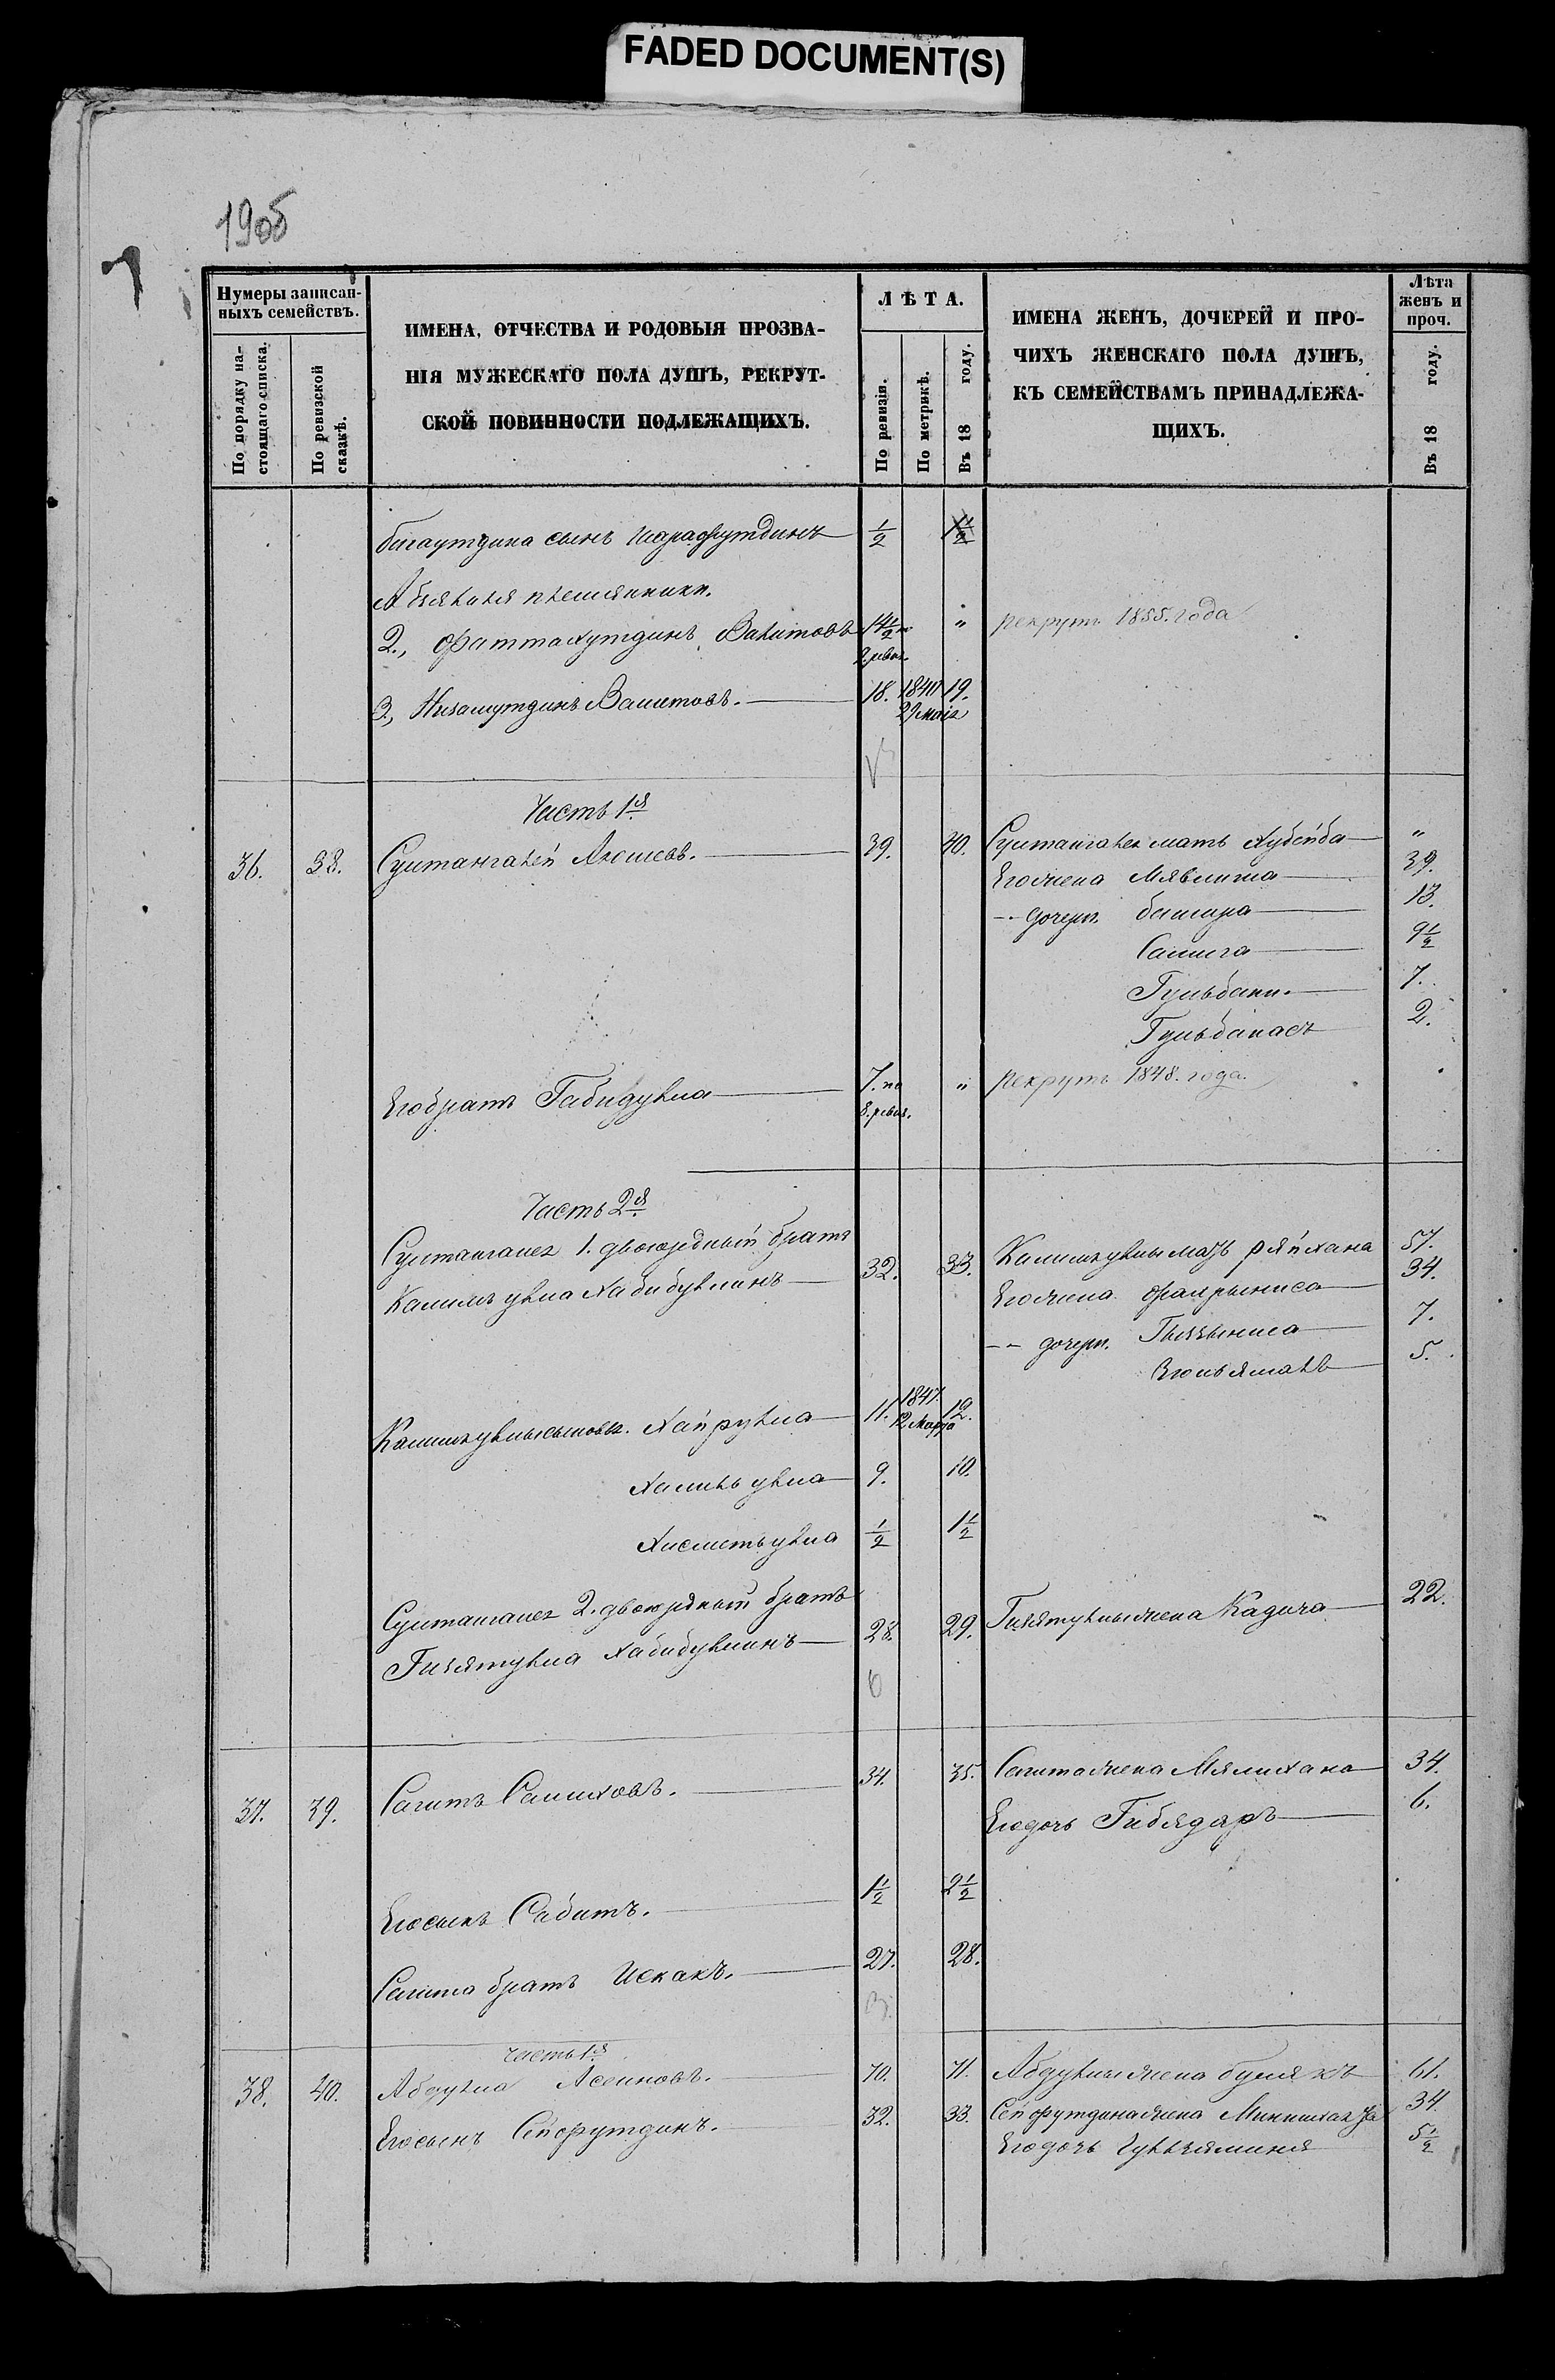 FADED DOCUMENT(S)
1905
Нумеры записан-
ныхъ семействъ.
По порядку на-
стоящаго списка.
По ревизской
сказкѣ.
ИМЕНА, ОТЧЕСТВА И РОДОВЫЯ ПРОЗВА-
НІЯ МУЖЕСКАГО ПОЛА ДУШЪ, РЕКРУТ-
СКОЙ ПОВИННОСТИ ПОДЛЕЖАЩИХЪ.
ЛѢТА.
По ревизіи.
По метрикѣ.
Въ 18 году.
ИМЕНА ЖЕНЪ, ДОЧЕРЕЙ И ПРО-
ЧИХЪ ЖЕНСКАГО ПОЛА ДУШЪ,
КЪ СЕМЕЙСТВАМЪ ПРИНАДЛЕЖА-
ЩИХЪ.
Лѣта
женъ и
проч.
Въ 18 году.
Бигаутдина сынъ Шарафутдинъ 1/2 1 1/2
племянники.
2., Фаттахутдинъ Вахитовъ 14 1/2 по " рекрутъ 1855. года
9. ревиз.
3., Низамутдинъ Вахитовъ. 18. 1840 19.
29 мaія
Часть 1я
36. 38. Султангалей Аюшевъ. 39. 40. Султангалея мать Хубейба "
Его жена Мявлиха 39.
-- дочери. Башира 13.
Салига 9 1/2
Гульбану 7.
Гульбанасъ 2.
Его братъ Габидулла 7. по " рекрутъ 1848. года.
8. ревиз.
Часть 2я
Султангалея 1. двоюродный братъ
Калимулла Хабибуллинъ 32. 33. Калимуллы мать Ряйхана 57.
Его жена Фахрыниса 34.
-- дочери. 7.
5.
Калимуллы сыновья. Хайрулла 11. 1847. 12.
12 Марта
Халиулла 9. 10.
Хисметулла 1/2 1 1/2
Султангалея 2. двоюродный братъ
Гизятулла Хабибуллинъ 28. 29. Гизятуллы жена Кадича 22.
37. 39. Сагитъ Салиховъ. 34. 35. Сагита жена Мялихана 34.
Его дочь Гибядаръ 6.
Его сынъ Сабитъ. 1 1/2 2 1/2
Сагита братъ Искакъ. 27. 28.
Часть 1я
38. 40. Абдулла Асеиновъ. 70. 71. Абдуллы жена Булякъ 61.
Его сынъ Сейфутдинъ. 32. 33. Сейфутдина жена 34
Его дочь 5 1/2